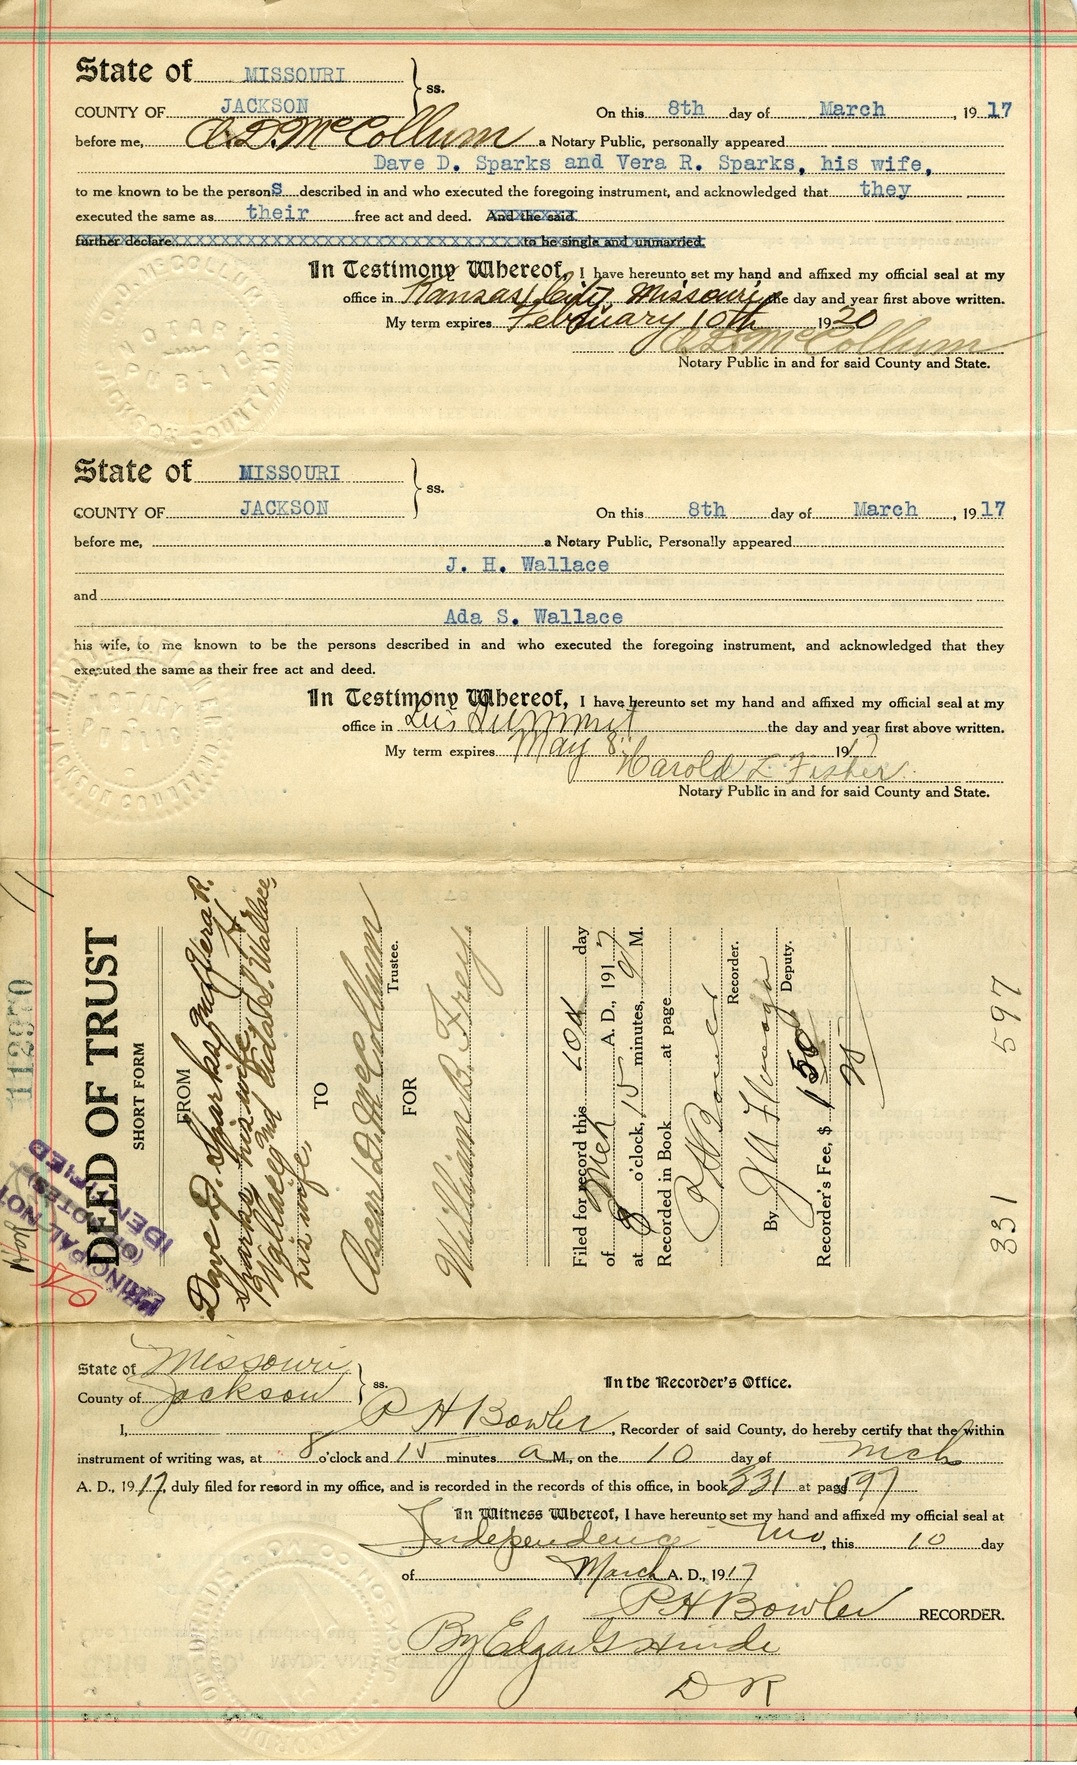 State of MISSOURI
ss.
COUNTY OF JACKSON On this 8th day of March, 1917
before me, O.D. McCollum a Notary Public, personally appeared
Dave D. Sparks and Vera R. Sparks, his wife,
to me known to be the persons described in and who executed the foregoing instrument, and acknowledged that they
executed the same as their free act and deed. And the said
further declare to be single and unmarried.
In Testimony Whereof, I have hereunto set my hand and affixed my official seal at my
office in Kansas City, Missouri the day and year first above written.
My term expires February 10th 1920
O.D. McCollum
Notary Public in and for said County and State.
NOTARY
PUBLIC
JACKSON COUNTY, MO.
State of MISSOURI
ss.
COUNTY OF JACKSON On this 8th day of March, 1917
before me, a Notary Public, Personally appeared
J. H. Wallace
and
Ada S. Wallace
his wife, to me known to be the persons described in and who executed the foregoing instrument, and acknowledged that they
executed the same as their free act and deed.
In Testimony Whereof, I have hereunto set my hand and affixed my official seal at my
office in Lees Summit the day and year first above written.
My term expires May 8 1917
Harold L Fisher
Notary Public in and for said County and State.
NOTARY
PUBLIC
JACKSON COUNTY, MO.
PRINCIPAL NOTE
(OR NOTES) NOT
IDENTIFIED
DEED OF TRUST
SHORT FORM
FROM
Dave D. Sparks and Vera R.
Sparks, his wife, J. H.
Wallace and Ada S. Wallace,
his wife,
TO
Oscar D. McCollum
Trustee.
FOR
William B. Frey.
Filed for record this 10 day
of Mch A. D., 1917
at 8 o'clock, 15 minutes, a M.
Recorded in Book at page
P H Bowler
Recorder.
By
Deputy.
Recorder's Fee, $ 1 50
331 597
State of Missouri
ss.
County of Jackson
In the Recorder's Office.
I, P H Bowler, Recorder of said County, do hereby certify that the within
instrument of writing was, at 8 o'clock and 15 minutes a M., on the 10 day of Mch
A. D., 1917, duly filed for record in my office, and is recorded in the records of this office, in book 331 at page 597
In Witness Whereof, I have hereunto set my hand and affixed my official seal at
Independence Mo, this 10 day
of March A. D., 1917
P H Bowler RECORDER.
By Edgar G Hinde
D R